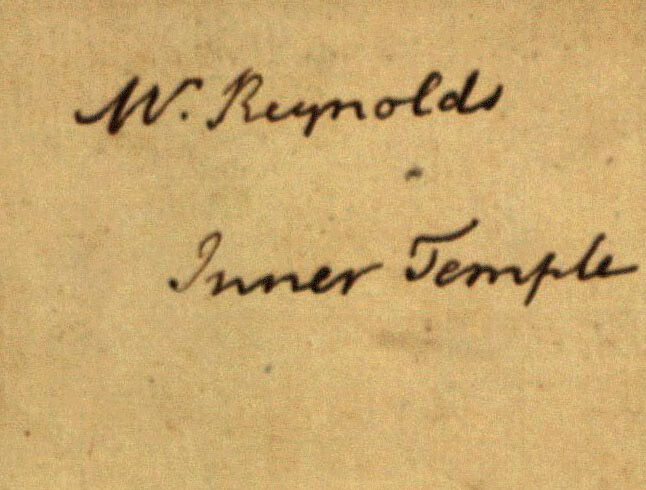 W. Reynolds
Inner Temple